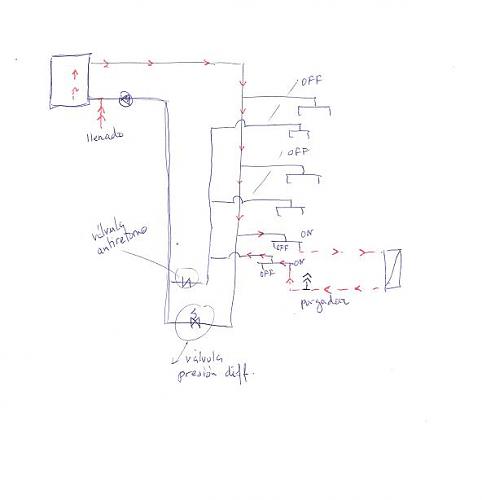 OFF
llenado
OFF
válvula
antiretorno
ON
OFF
ON
OFF
purgador
válvula
presión diff.